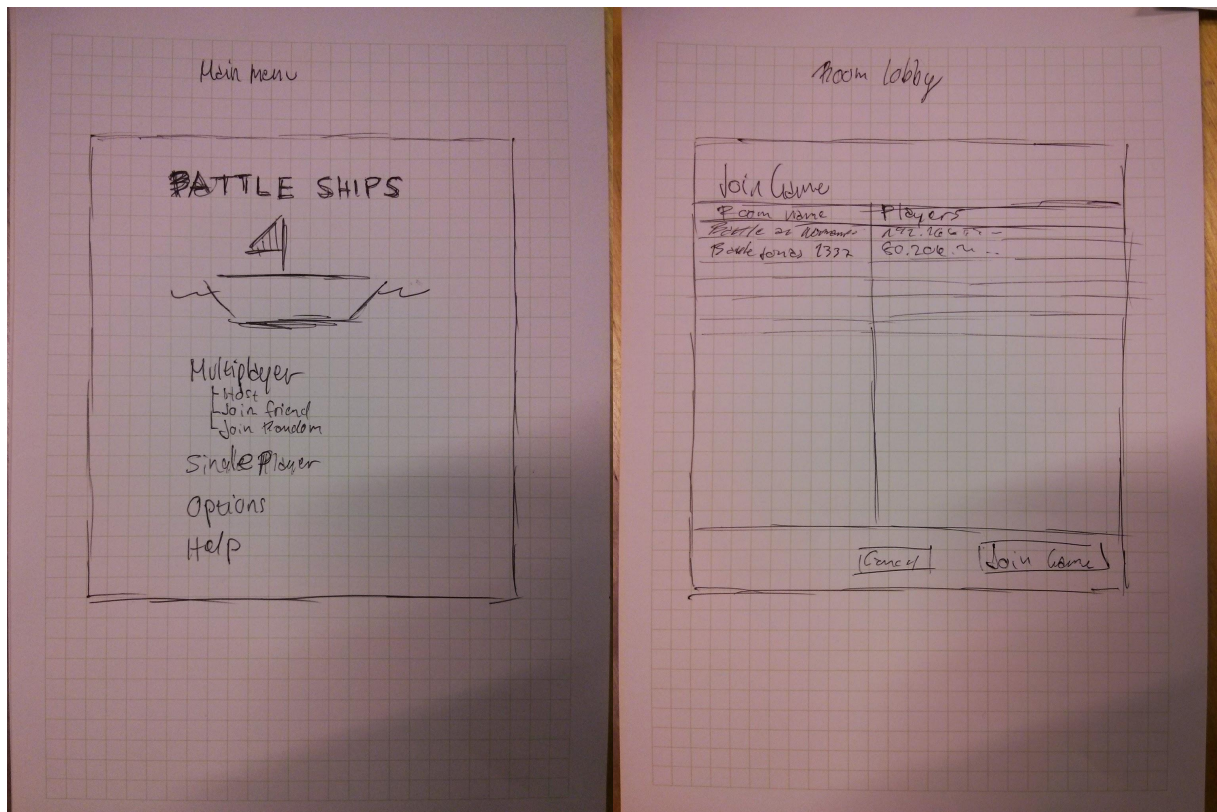 Main menu
BATTLE SHIPS
Multiplayer
Host
Join friend
Join Random
Single Player
Options
Help
Room lobby
Join Game
Room name Players
Battle at
Battle Jonas 1337 80.206.
Cancel Join Game